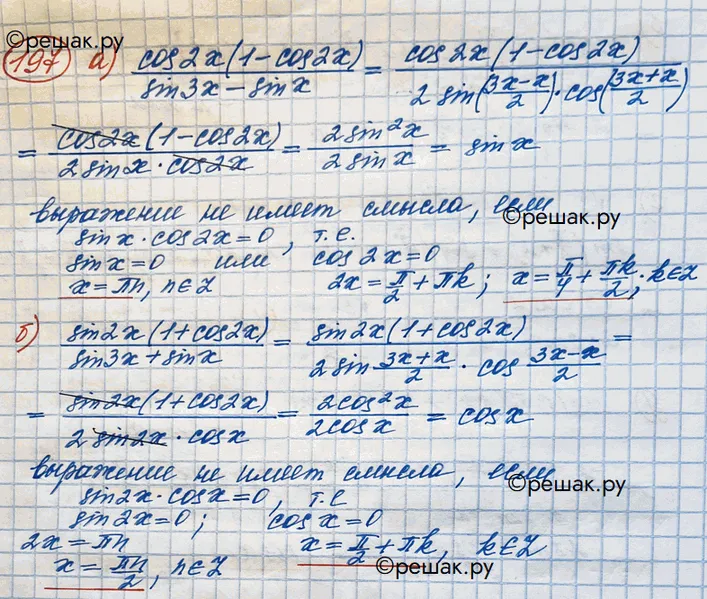 ©решак.ру
197 а) cos2x(1-cos2x)/(sin3x-sinx) = cos2x(1-cos2x)/(2sin((3x-x)/2)·cos((3x+x)/2))
= cos2x(1-cos2x)/(2sinx·cos2x) = 2sin²x/(2sinx) = sinx
выражение не имеет смысла, если
©решак.ру
sinx·cos2x=0, т.е.
sinx=0 или cos2x=0
x=πn, n∈Z 2x=π/2+πk; x=π/4+πk/2, k∈Z
б) sin2x(1+cos2x)/(sin3x+sinx) = sin2x(1+cos2x)/(2sin (3x+x)/2 · cos (3x-x)/2) =
= sin2x(1+cos2x)/(2sin2x·cosx) = 2cos²x/(2cosx) = cosx
выражение не имеет смысла, если
©решак.ру
sin2x·cosx=0, т.е
sin2x=0; cosx=0
2x=πn x=π/2+πk, k∈Z
x=πn/2, n∈Z
©решак.ру